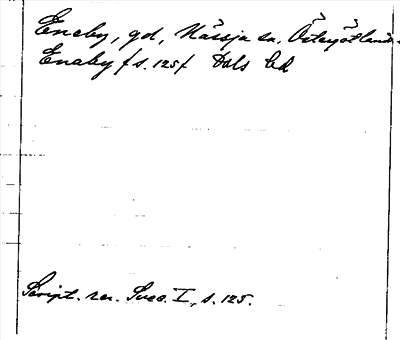 Eneby, gd, Nässja sn, Östergötland.
Enaby /s. 125/ Dals hd
Script. rer. Svec. I, s. 125.